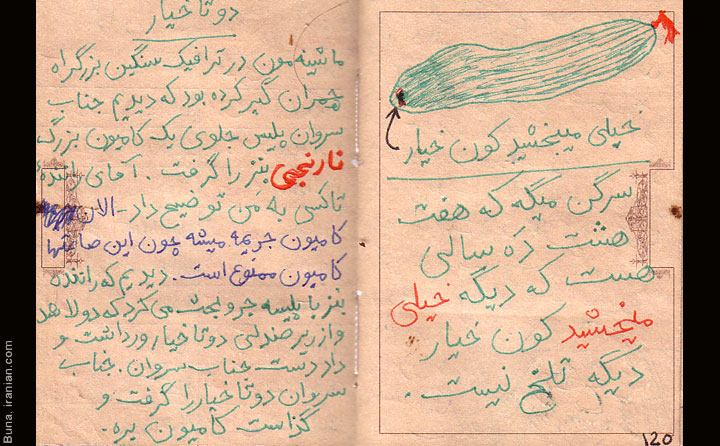 دو تا خیار
ماشینه مون در ترافیک سنگین بزرگراه
چمران گیر کرده بود که دیدیم جناب
سروان پلیس جلوی یک کامیون بزرگ
نارنجی بنز را گرفت. آقای رانندهٔ
تاکسی به من توضیح داد - الان
کامیون جریمه میشه چون این ساعتها
کامیون ممنوع است. دیدیم که راننده
بنز با پلیسه جر و بحث می کرد که دولا شد
و از زیر صندلی دو تا خیار ورداشت و
داد دست جناب سروان. جناب
سروان دو تا خیار را گرفت و
گذاشت کامیون بره.
خیلی میبخشید کون خیار
سرگن میگه که هفت
هشت ده سالی
هست که دیگه خیلی
میبخشید کون خیار
دیگه تلخ نیست.
120
Buna, iranian.com